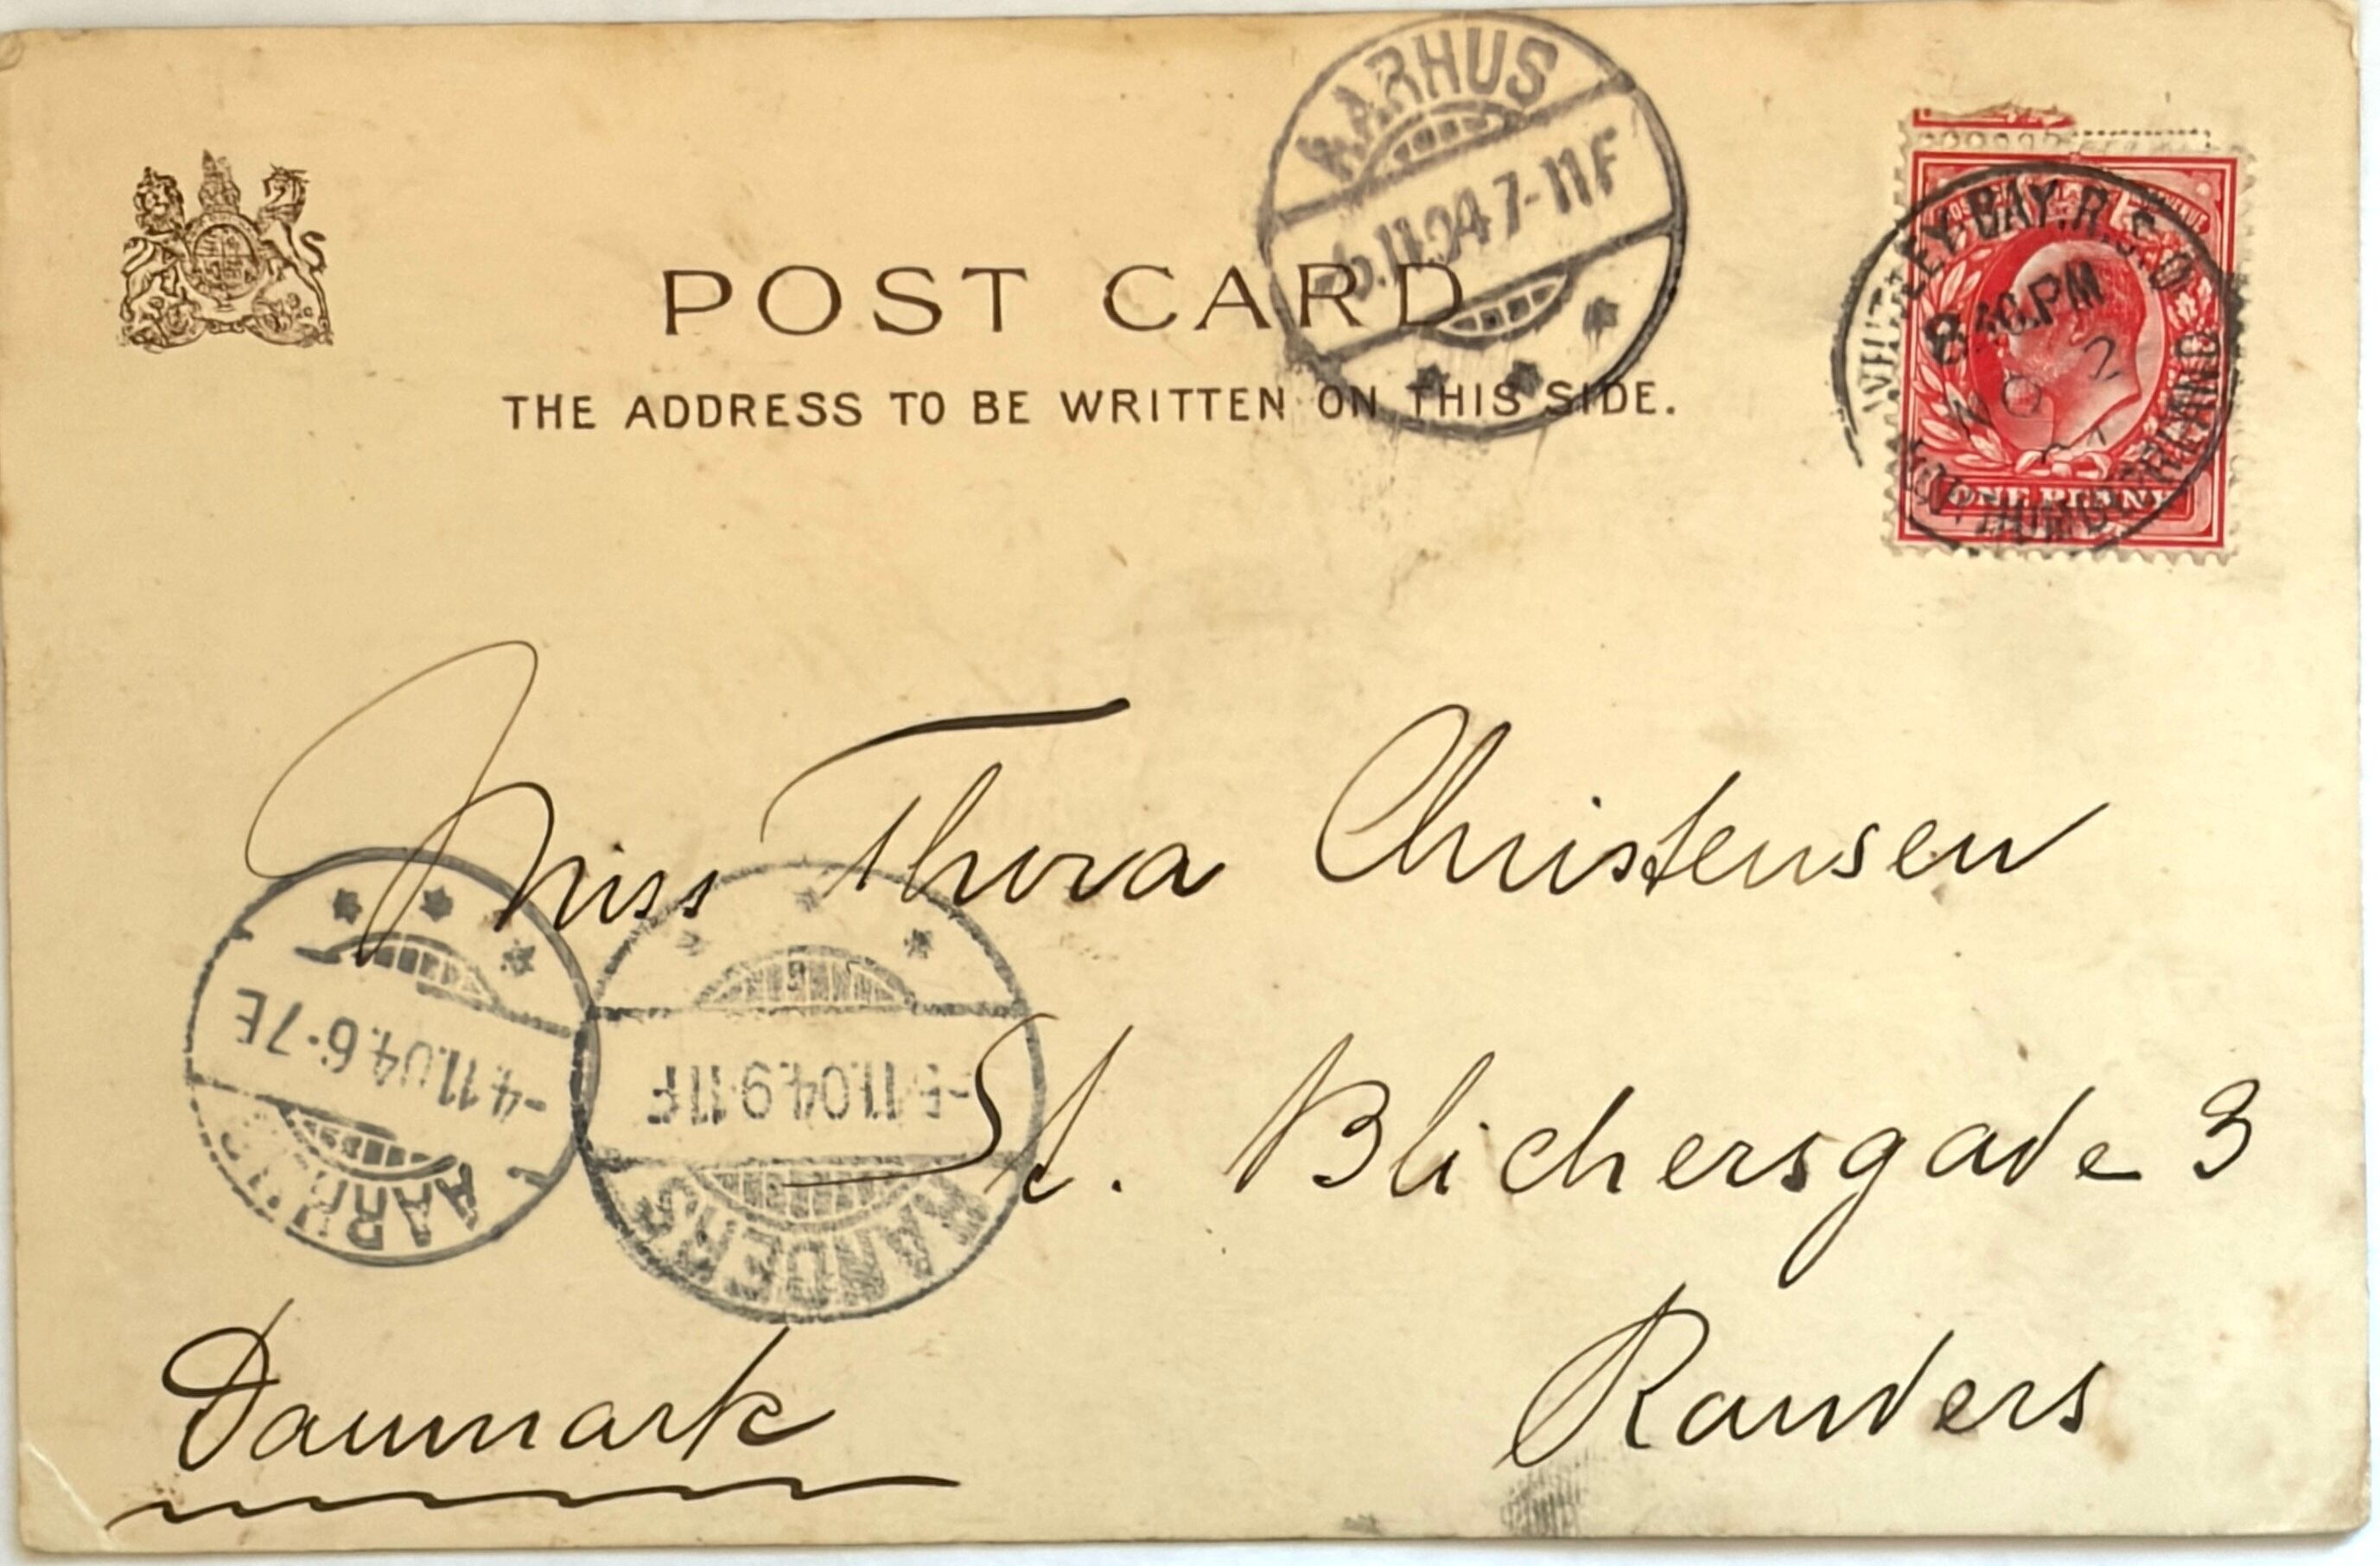 AARHUS
-6.11.04 7-11F
POST CARD
THE ADDRESS TO BE WRITTEN ON THIS SIDE.
WHITLEY BAY. R.S.O
8.40.PM
NO 2
04
NORTHUMBERLAND
ONE PENNY
Miss Thora Christensen
St. Blichersgade 3
Randers
Danmark
AARHUS
-4.11.04.6-7E
RANDERS
-5.11.04.9-11F